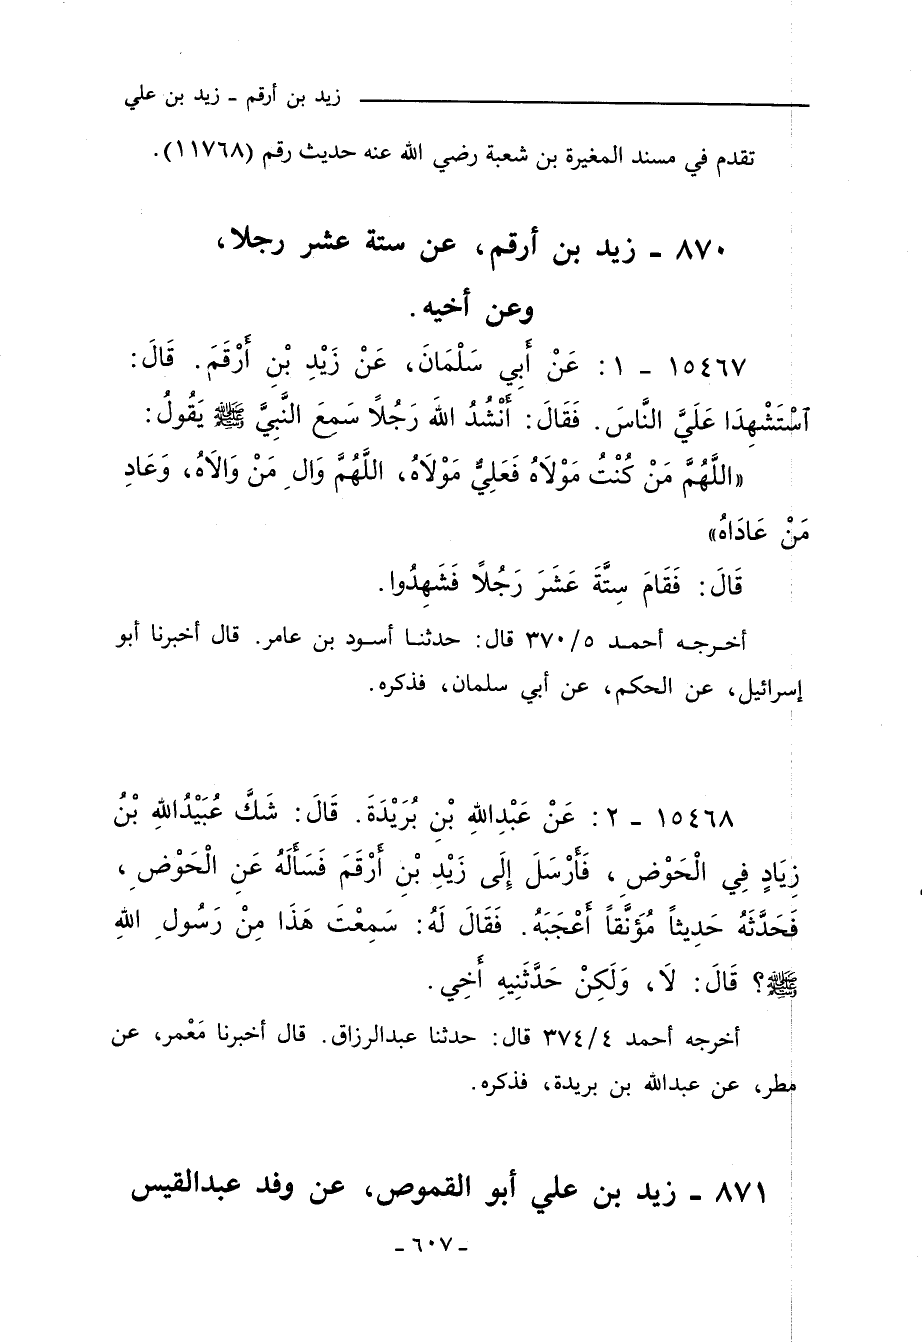 زيد بن أرقم - زيد بن علي
تقدم في مسند المغيرة بن شعبة رضي الله عنه حديث رقم (١١٧٦٨).
٨٧٠ - زيد بن أرقم، عن ستة عشر رجلا،
وعن أخيه.
١٥٤٦٧ - ١: عَنْ أَبِي سَلْمَانَ، عَنْ زَيْدِ بْنِ أَرْقَمَ. قَالَ:
ٱسْتَشْهِدَا عَلَيَّ النَّاسَ. فَقَالَ: أَنْشُدُ اللهَ رَجُلاً سَمِعَ النَّبِيَّ ﷺ يَقُولُ:
«اللَّهُمَّ مَنْ كُنْتُ مَوْلَاهُ فَعَلِيٌّ مَوْلَاهُ، اللَّهُمَّ وَالِ مَنْ وَالاَهُ، وَعَادِ
مَنْ عَادَاهُ»
قَالَ: فَقَامَ سِتَّةَ عَشَرَ رَجُلاً فَشَهِدُوا.
أخرجه أحمد ٣٧٠/٥ قال: حدثنا أسود بن عامر. قال أخبرنا أبو
إسرائيل، عن الحكم، عن أبي سلمان، فذكره.
١٥٤٦٨ - ٢: عَنْ عَبْدِاللهِ بْنِ بُرَيْدَةَ. قَالَ: شَكَّ عُبَيْدُاللهِ بْنُ
زِيَادٍ فِي الْحَوْضِ، فَأَرْسَلَ إِلَى زَيْدِ بْنِ أَرْقَمَ فَسَأَلَهُ عَنِ الْحَوْضِ،
فَحَدَّثَهُ حَدِيثاً مُؤَنَّقاً أَعْجَبَهُ. فَقَالَ لَهُ: سَمِعْتَ هَذَا مِنْ رَسُولِ اللهِ
ﷺ؟ قَالَ: لَا، وَلَكِنْ حَدَّثَنِيهِ أَخِي.
أخرجه أحمد ٣٧٤/٤ قال: حدثنا عبدالرزاق. قال أخبرنا مَعْمر، عن
مطر، عن عبدالله بن بريدة، فذكره.
٨٧١ - زيد بن علي أبو القموص، عن وفد عبدالقيس
- ٦٠٧ -